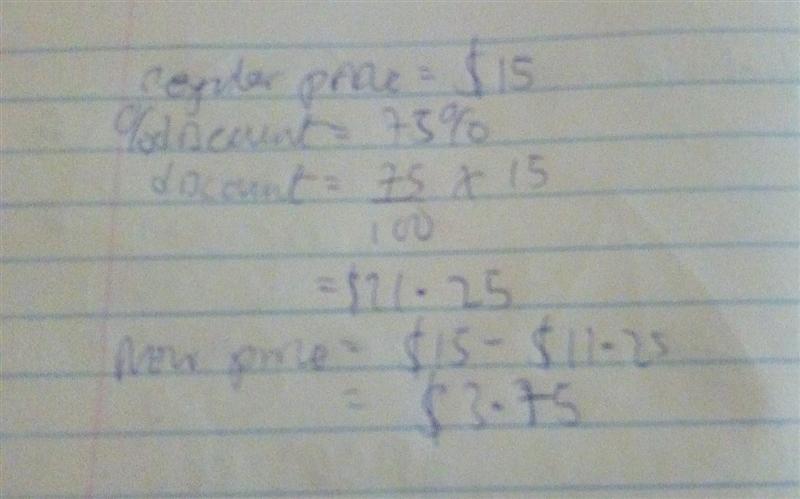 regular price = $15
% discount = 75%
discount = 75/100 x 15
= $11.25
New price = $15 - $11.25
= $3.75